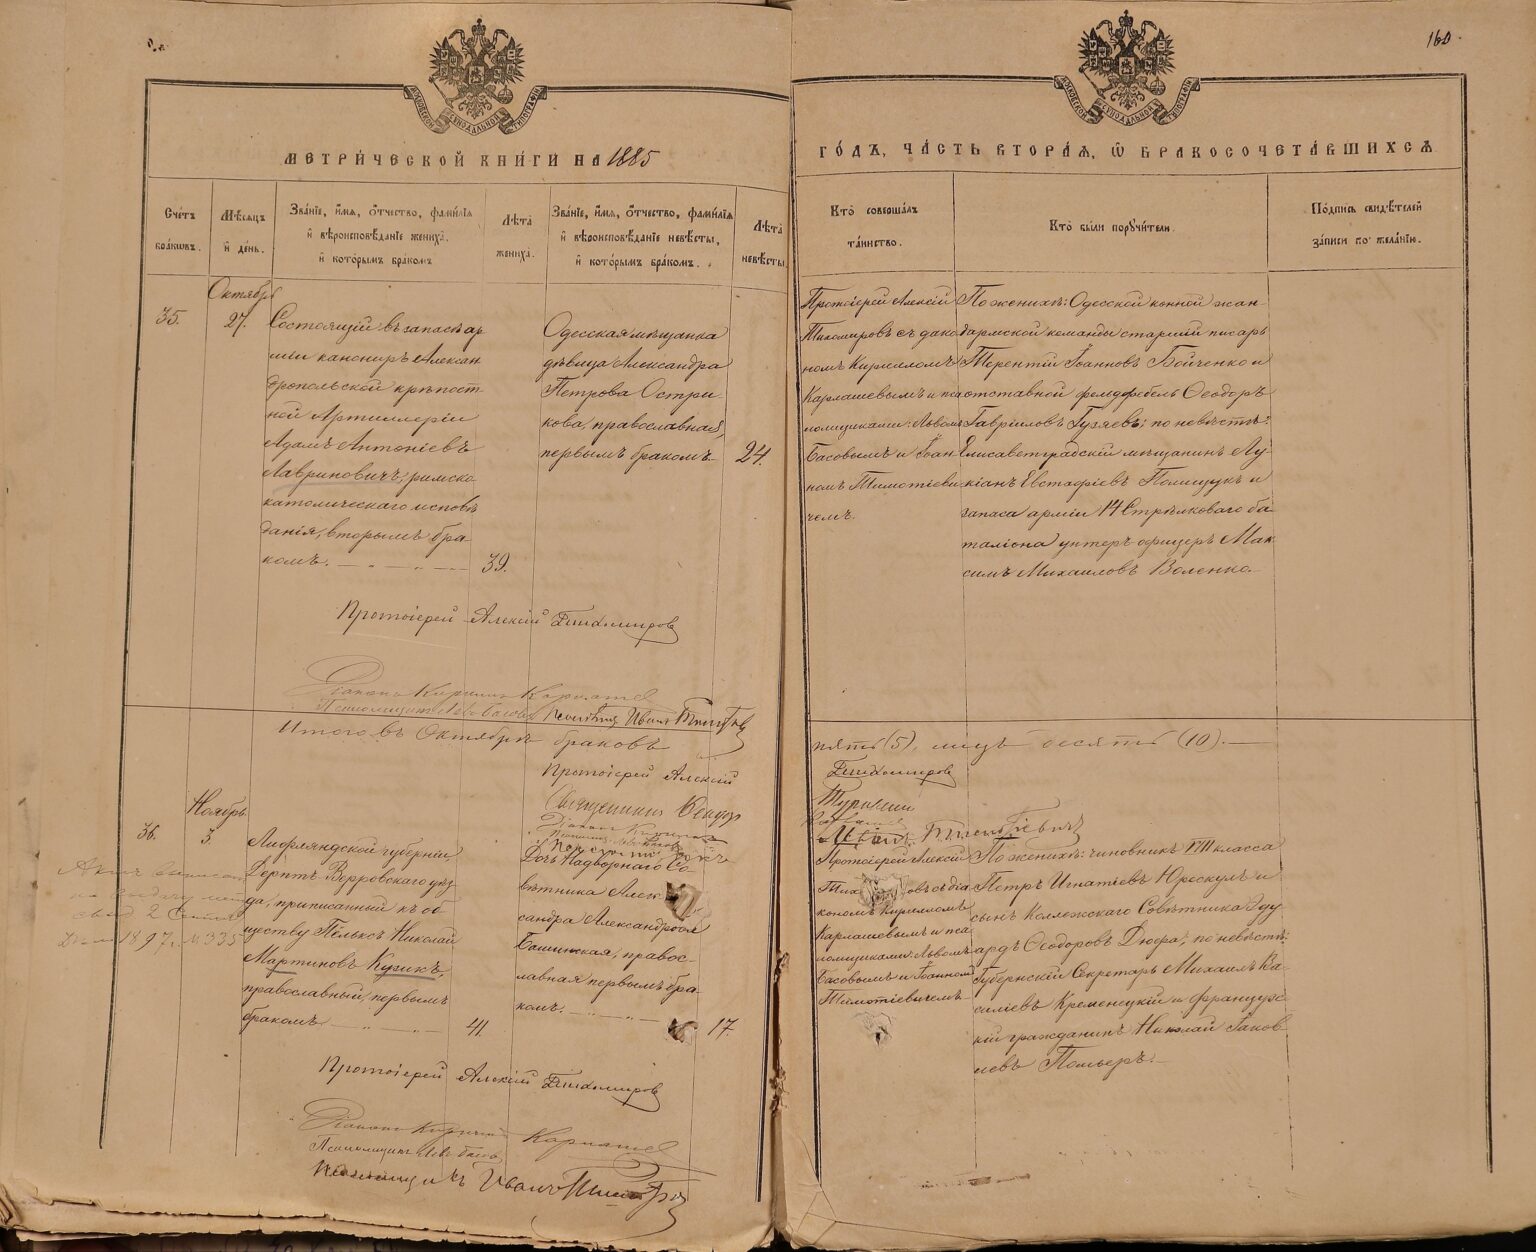 160.
МОСКОВСКОЙ СѴНОДАЛЬНОЙ ТИПОГРАФІИ
МОСКОВСКОЙ СѴНОДАЛЬНОЙ ТИПОГРАФІИ
МЕТРИ́ЧЕСКОЙ КНИ́ГИ НА 1885
ГО́ДЪ, ЧА́СТЬ ВТОРА́Я, Ѡ҆ БРАКОСОЧЕТА́ВШИХСЯ
Сче́тъ
бра́ковъ.
Мѣ́сяцъ
и҆ де́нь.
Зва́нїе, и҆́мя, о҆́тчество, фами́лїя
и҆ вѣроисповѣ́данїе жениха̀,
и҆ кото́рымъ бра́комъ
Лѣта̀
жениха̀.
Зва́нїе, и҆́мя, о҆́тчество, фами́лїя
и҆ вѣроисповѣ́данїе невѣ́сты,
и҆ кото́рымъ бра́комъ.
Лѣта̀
невѣ́сты
Кто̀ соверша́лъ
та́инство.
Кто̀ бы́ли порꙋчи́тели.
По́дпись свидѣ́телей
за́писи по жела́нїю.
Октябрь
35.
27.
Состоящій въ запасѣ ар
міи канониръ Алексан
дропольской крѣпост
ной Артиллеріи
Адамъ Антоніевъ
Лавриновичъ, римско
католическаго исповѣ
данія, вторымъ бра
комъ.
39.
Одесская мѣщанка
дѣвица Александра
Петрова Остри-
кова, православная,
первымъ бракомъ
24.
Протоіерей Алексій
Тихомировъ съ діако
номъ Кирилломъ
Карпашевымъ и пса
ломщиками: Львомъ
Басовымъ и Іоан
номъ Тимотіеви
чемъ.
По женихѣ: Одесской конной жан-
дармской команды старшій писарь
Терентій Іоанновъ Бойченко и
отставной фельдфебель Ѳеодоръ
Гавріиловъ Гузяевъ; по невѣстѣ:
Елисаветградскій мѣщанинъ Лу-
кіанъ Евстафіевъ Полищукъ и
запаса арміи 14 Стрѣлковаго ба
таліона унтеръ-офицеръ Мак
симъ Михаиловъ Воленко.
Протоіерей Алексій Тихомировъ
Діаконъ Кириллъ Карпашев
Псаломщикъ Левъ Басовъ
Псаломщикъ Иванъ
Итого въ Октябрѣ браковъ
пять (5), лицъ десять (10).
Протоіерей Алексій
Тихомировъ
Священникъ Ѳеодор
Діаконъ Кириллъ
Ноябрь
36.
3.
Лифляндской губерніи,
Дерптъ-Верровскаго уѣз
да, приписанный къ об
ществу Пёльксъ Николай
Мартиновъ Кузикъ,
православный, первымъ
бракомъ.
41.
Дочь Надворнаго Со-
вѣтника Алек
сандра Александрова
православная первымъ бра-
комъ.
17.
Протоіерей Алексій
Тихомировъ съ діа
кономъ Кирилломъ
Карпашевымъ и пса
ломщиками: Львомъ
Басовымъ и Іоанномъ
Тимотіевичемъ
По женихѣ: чиновникъ VIII класса
Петръ Игнатіевъ Юрескулъ и
сынъ Коллежскаго Совѣтника Эду
ардъ Ѳеодоровъ Дюфа; по невѣстѣ:
Губернскій Секретарь Михаилъ Ва-
силіевъ Кременецкій и француз
кій гражданинъ Николай Іаков
левъ Польеръ.
Протоіерей Алексій Тихомировъ
Діаконъ Кириллъ Карпашев
Псаломщикъ Левъ Басовъ
Псаломщикъ Иванъ